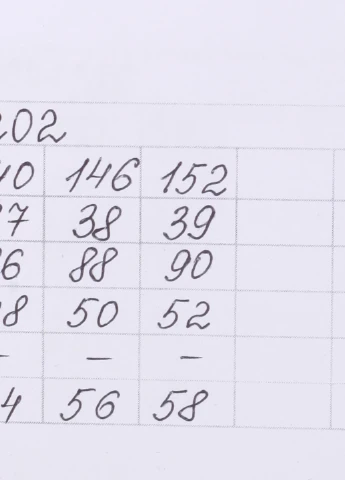 202
40 146 152
37 38 39
86 88 90
48 50 52
– – –
54 56 58